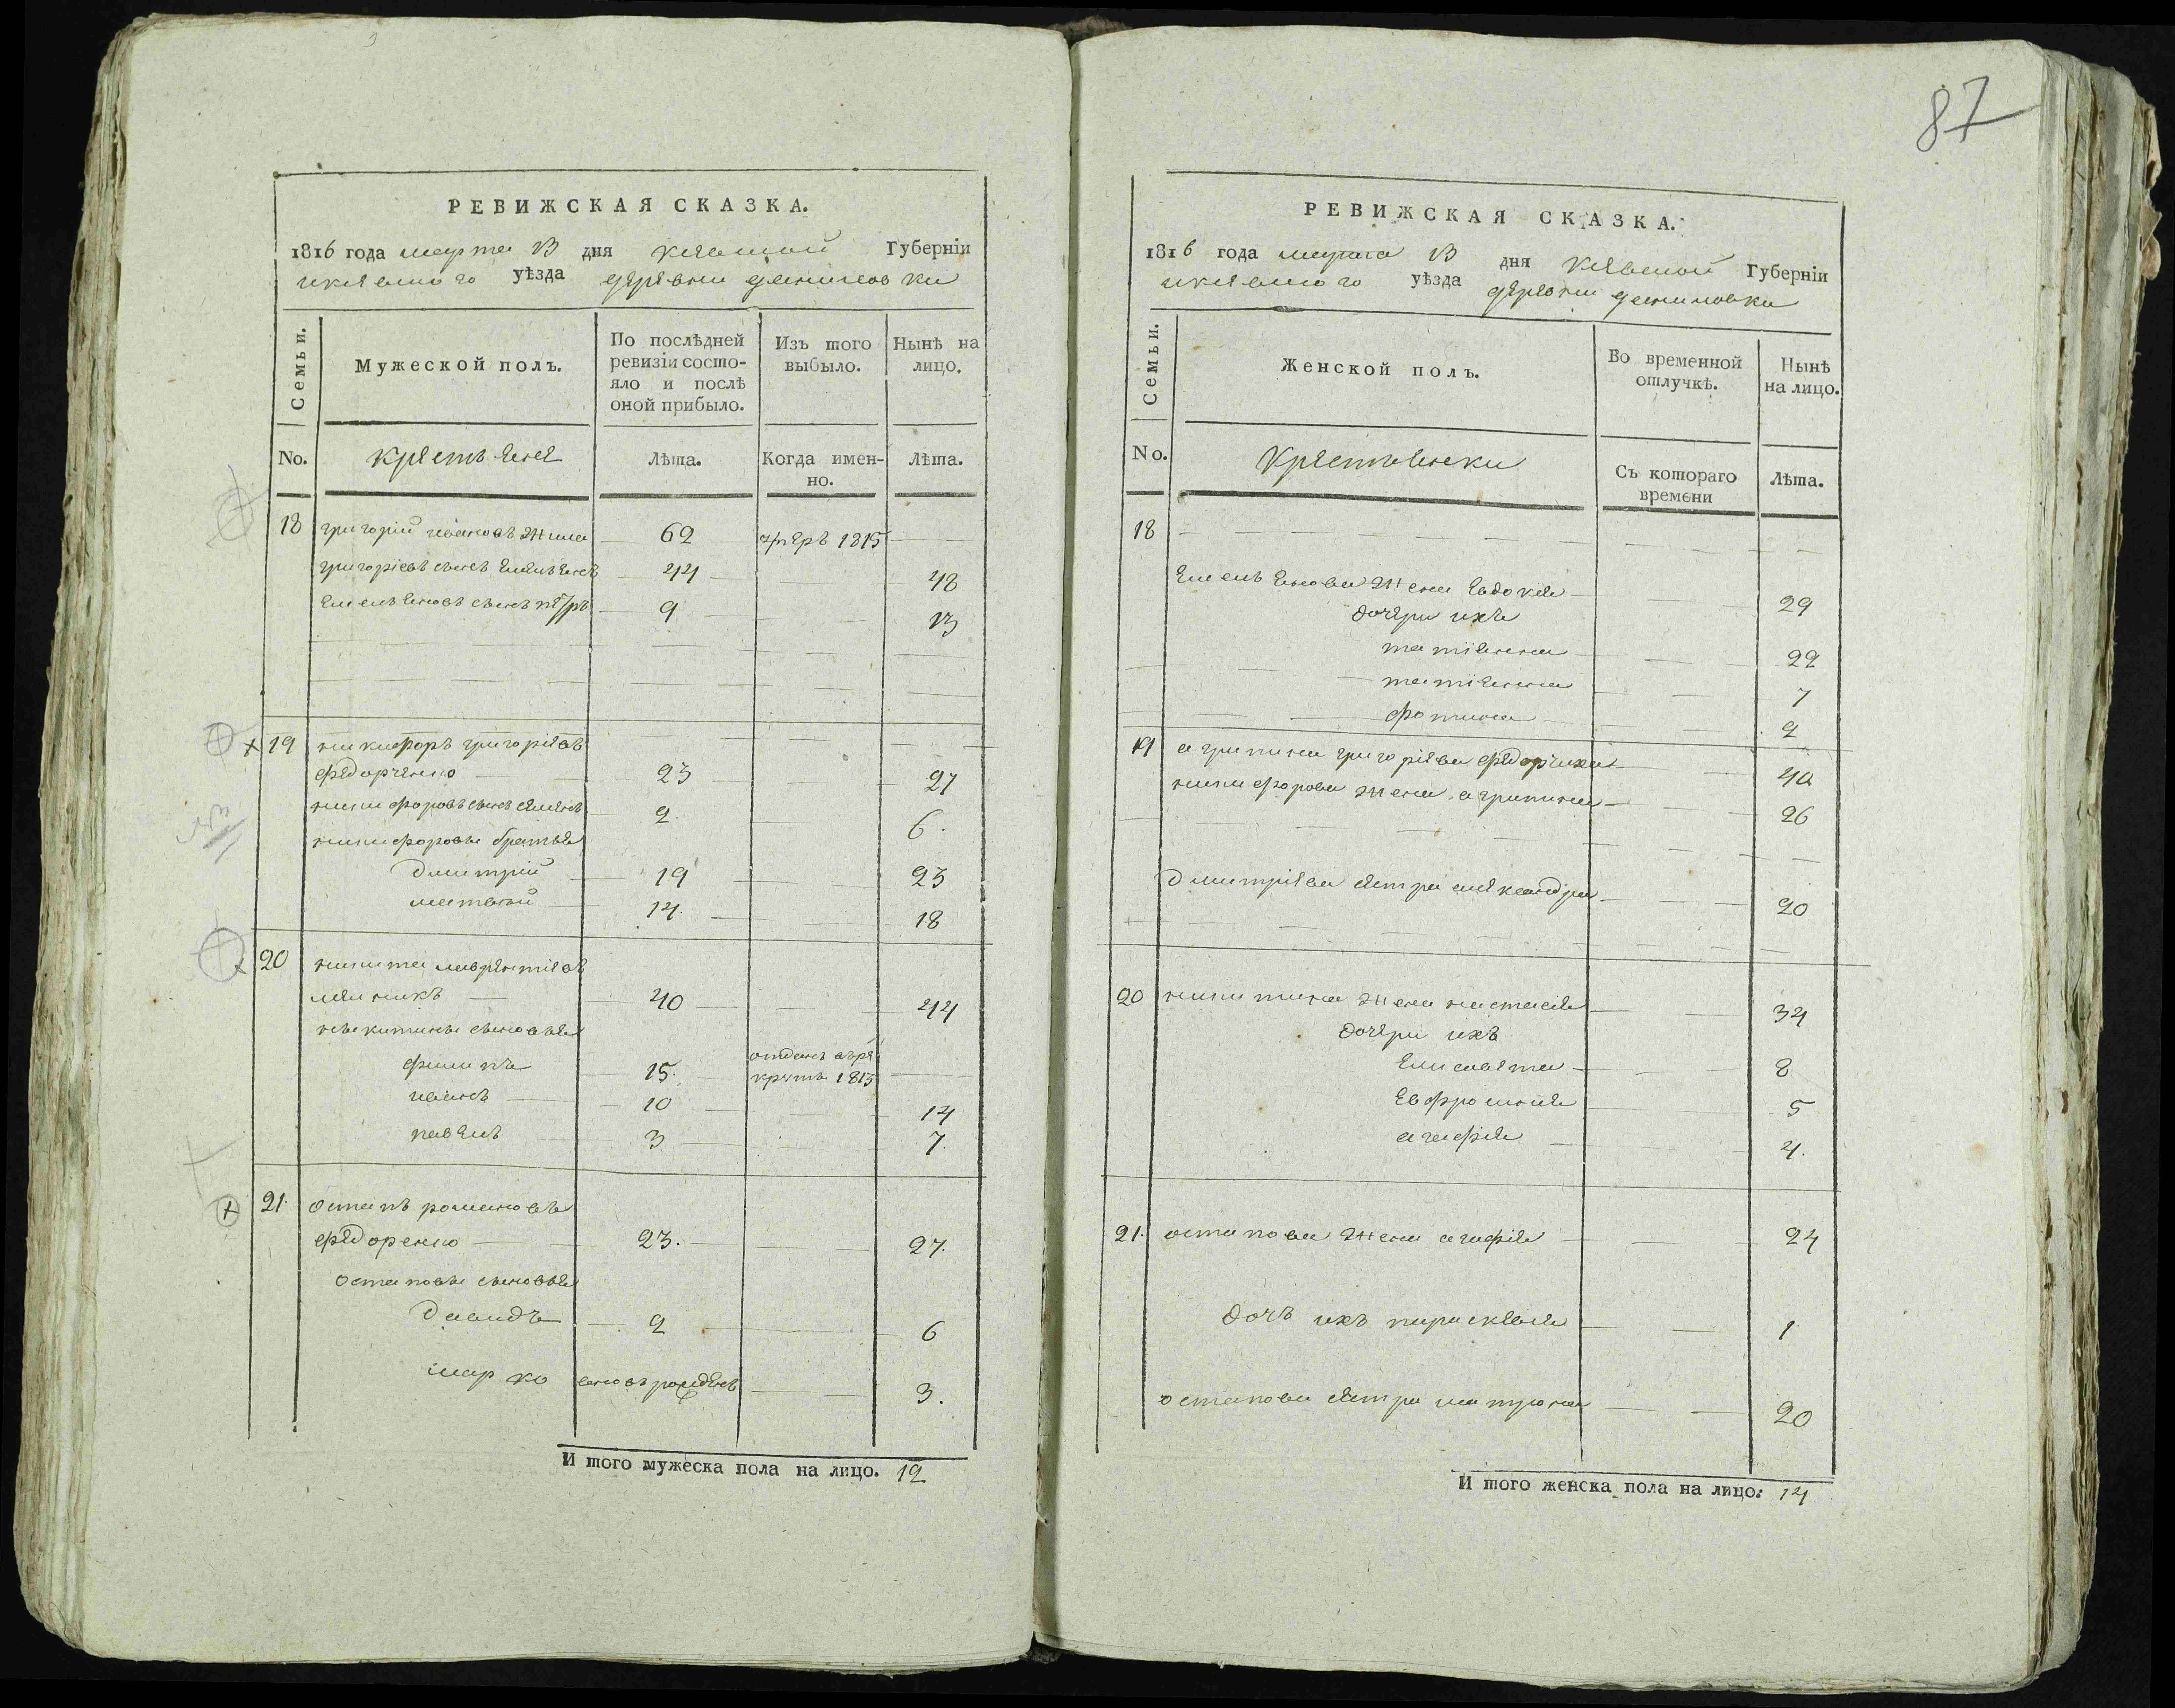 87
РЕВИЖСКАЯ СКАЗКА.
1816 года марта 13 дня киевской Губерніи
киевского уѣзда деревни денисовки
Семьи.
Мужеской полъ.
По послѣдней ревизіи состояло и послѣ оной прибыло.
Изъ того выбыло.
Нынѣ на лицо.
No.
крестьяне
Лѣта.
Когда именно.
Лѣта.
18 григорій ивановъ 62 умеръ 1815
григоріевъ сынъ Емельянъ 44 48
Емельяновъ сынъ петръ 9 13
19 никифоръ григоріевъ
федорченко 23 27
никифоровъ сынъ семенъ 2 6
никифоровы братья
дмитрій 19 23
матвій 14 18
20 никита лаврентіевъ
40 44
никитины сыновья
филипъ 15 отданъ въ рекруты 1813
иванъ 10 14
павелъ 3 7
21 остапъ романовъ
федоренко 23 27
остаповы сыновья
давидъ 2 6
марко вновь рожденъ 3
И того мужеска пола на лицо. 12
РЕВИЖСКАЯ СКАЗКА.
1816 года марта 13 дня киевской Губерніи
киевского уѣзда деревни денисовки
Семьи.
Женской полъ.
Во временной отлучкѣ.
Нынѣ на лицо.
No.
крестьянки
Съ котораго времени
Лѣта.
18
Емельянова жена Евдокия 29
дочери ихъ
татіянна 22
татіянна 7
фотина 2
19 агрипина григоріева федорчиха 40
никифорова жена агрипина 26
дмитріева сестра александра 20
20 никитина жена настасія 34
дочери ихъ
Елисавета 8
Евфросинія 5
агафія 4
21 остапова жена агафія 24
дочь ихъ параскевія 1
остапова сестра матрона 20
И того женска пола на лицо: 14